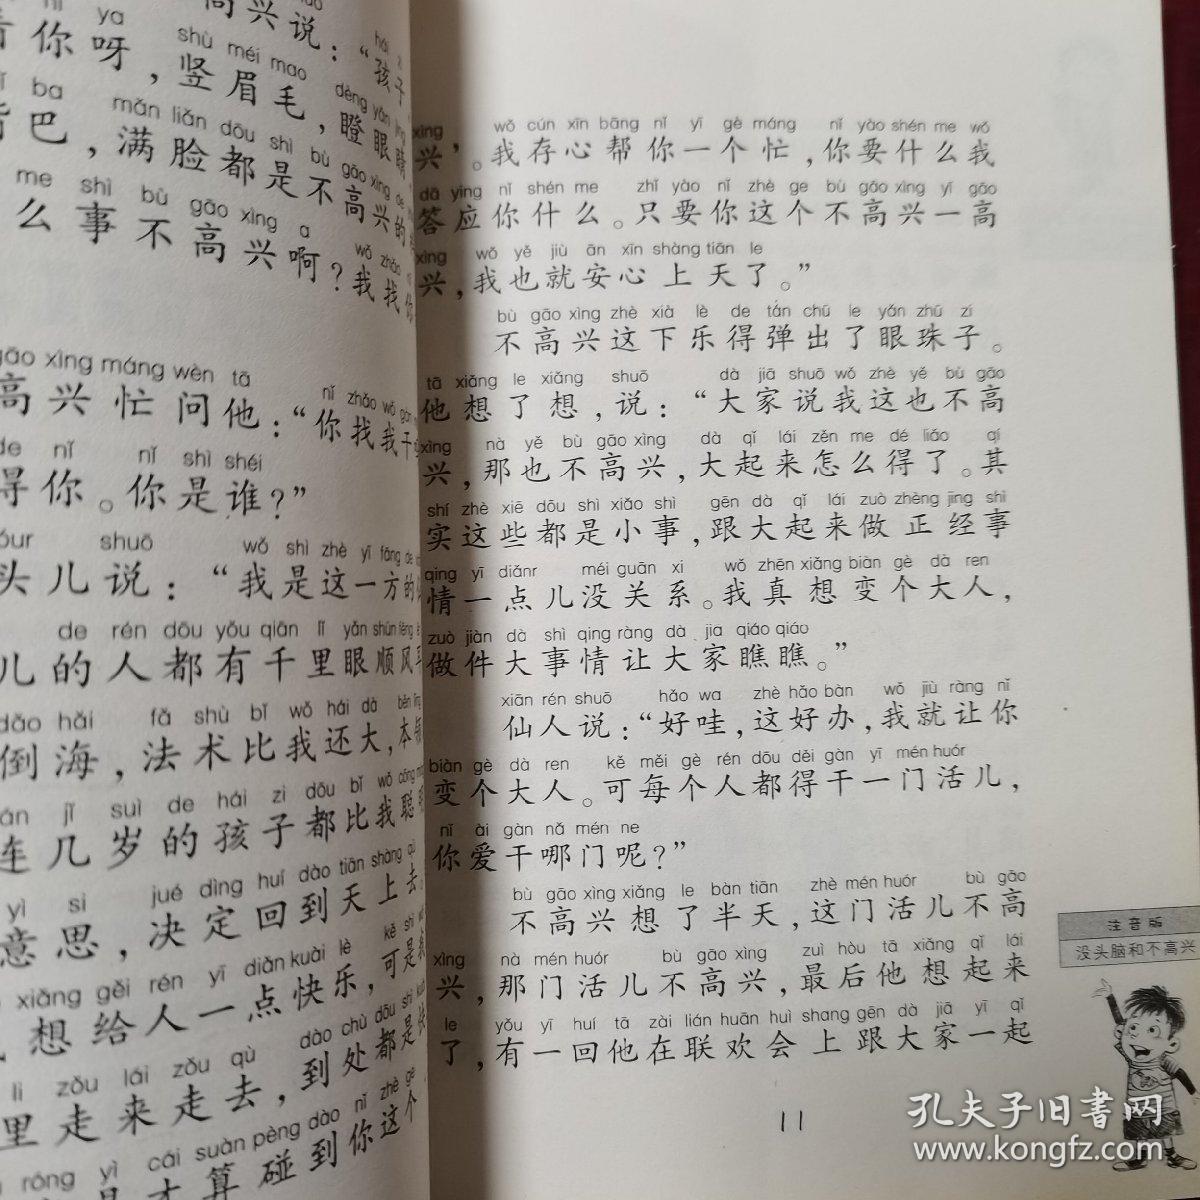 高兴说：“孩子，
着你呀，竖眉毛，瞪眼睛，
嘴巴，满脸都是不高兴的
么事不高兴啊？我找你
gāo xìng máng wèn tā nǐ zhǎo wǒ gàn
高兴忙问他：“你找我干
de nǐ nǐ shì shéi
得你。你是谁？”
shuō wǒ shì zhè yī fāng de
头儿说：“我是这一方的
de rén dōu yǒu qiān lǐ yǎn shùn fēng ěr
儿的人都有千里眼顺风耳
dǎo hǎi fǎ shù bǐ wǒ hái dà běn lǐng
倒海，法术比我还大，本领
jǐ suì de hái zi dōu bǐ wǒ cōng
连几岁的孩子都比我聪
yì si jué dìng huí dào tiān shàng qù
意思，决定回到天上去。
xiǎng gěi rén yī diǎn kuài lè kě shì
想给人一点快乐，可是
li zǒu lái zǒu qù dào chù dōu shì kuài
里走来走去，到处都是快
róng yì cái suàn pèng dào nǐ zhè ge
才算碰到你这个
xìng wǒ cún xīn bāng nǐ yī gè máng nǐ yào shén me wǒ
兴。我存心帮你一个忙，你要什么我
dā ying nǐ shén me zhǐ yào nǐ zhè ge bù gāo xìng yī gāo
答应你什么。只要你这个不高兴一高
xìng wǒ yě jiù ān xīn shàng tiān le
兴，我也就安心上天了。”
bù gāo xìng zhè xià lè de tán chū le yǎn zhū zi
不高兴这下乐得弹出了眼珠子。
tā xiǎng le xiǎng shuō dà jiā shuō wǒ zhè yě bù gāo
他想了想，说：“大家说我这也不高
xìng nà yě bù gāo xìng dà qǐ lái zěn me dé liǎo qí
兴，那也不高兴，大起来怎么得了。其
shí zhè xiē dōu shì xiǎo shì gēn dà qǐ lái zuò zhèng jing shì
实这些都是小事，跟大起来做正经事
qing yī diǎnr méi guān xi wǒ zhēn xiǎng biàn gè dà ren
情一点儿没关系。我真想变个大人，
zuò jiàn dà shì qing ràng dà jiā qiáo qiáo
做件大事情让大家瞧瞧。”
xiān rén shuō hǎo wa zhè hǎo bàn wǒ jiù ràng nǐ
仙人说：“好哇，这好办，我就让你
biàn gè dà ren kě měi gè rén dōu děi gàn yī mén huór
变个大人。可每个人都得干一门活儿，
nǐ ài gàn nǎ mén ne
你爱干哪门呢？”
bù gāo xìng xiǎng le bàn tiān zhè mén huór bù gāo
不高兴想了半天，这门活儿不高
xìng nà mén huór bù gāo xìng zuì hòu tā xiǎng qǐ lái
兴，那门活儿不高兴，最后他想起来
le yǒu yī huí tā zài lián huān huì shang gēn dà jiā yī qǐ
了，有一回他在联欢会上跟大家一起
11
注音版
没头脑和不高兴
孔夫子旧书网
www.kongfz.com